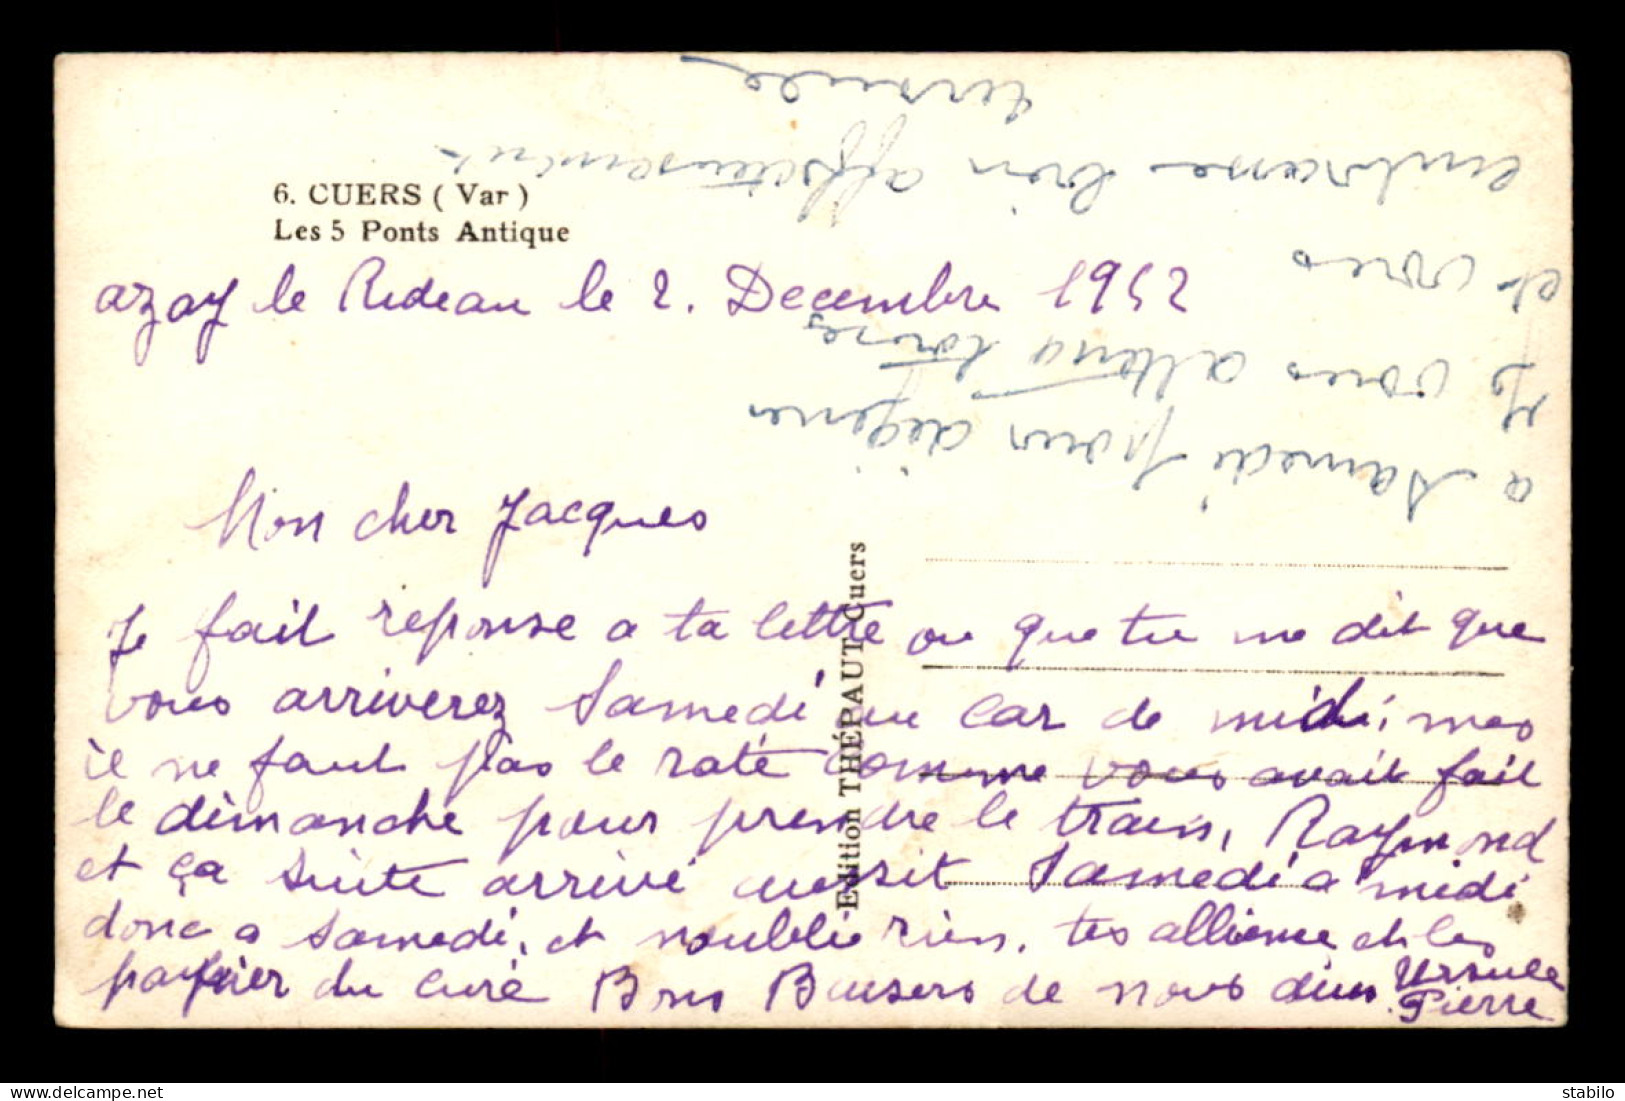 6. CUERS ( Var )
Les 5 Ponts Antique
azay le Rideau le 2. Decembre 1952
Mon cher Jacques
Je fait reponse a ta lettre ou que tu me dit que
vous arriverez Samedi au car de midi, mes
il ne faut pas le raté comme vous avait fait
le dimanche pour prendre le train, Raymond
et ça suite arrivé aussit Samedi a midi
donc a samedi, et noublie rien, tes allience et les
papier du curé Bons Baisers de nous deux Ursule
Pierre
Edition THÉPAUT Cuers
a samedi pour dejener
Je vous attend tous
et vous
embrasse bien affecteusement
Ursule
delcampe.net
stabilo